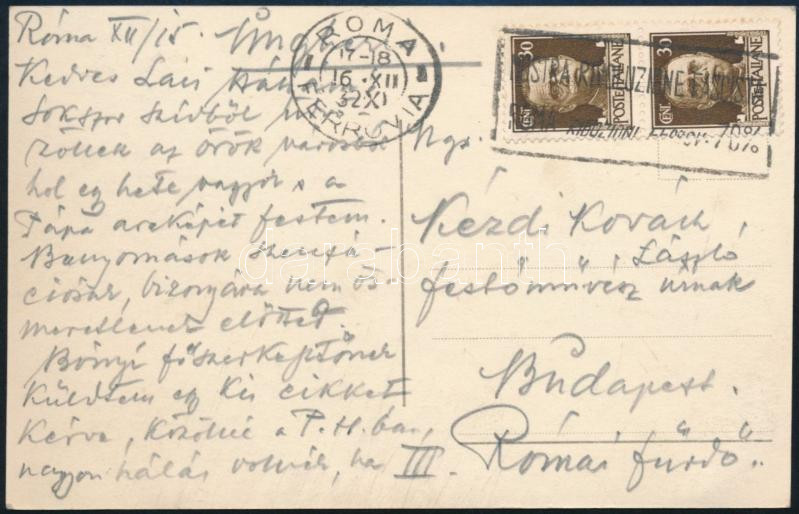 Róma XII/15.
Kedves Laci
Sokszor szívből
az örök városból
hol egy hete vagyok s a
Pápa arcképét festem.
Benyomások szenzá-
ciósak, bizonyára nem is-
meretlenek előtted.
Bónyi főszerkesztőnek
küldtem egy kis cikket
kérve, közölné a P.H.ban,
nagyon hálás volnék, ha
ROMA
FERROVIA
17-18
16·XII
32XI
30
CENT
POSTE ITALIANE
30
CENT
POSTE ITALIANE
MOSTRA RIVOLUZIONE FASCISTA
ROMA RIDUZIONI FERROV. 70%
Ngs.
Kézdi Kovách
„ „ László
festőművész úrnak
Budapest.
III. „Római fürdő".
darabanth